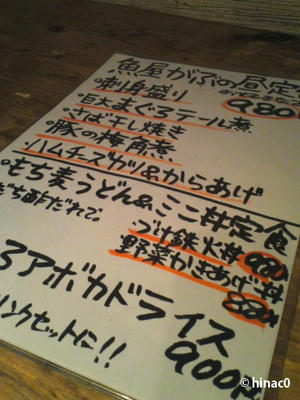 魚屋がぶの昼定
980
・刺身盛り
・目大まぐろテール煮
・さば干し焼き
・豚の梅角煮
・ハムチーズカツ&からあげ
・もち麦うどん&ミニ丼定食
づけ鉄火丼
野菜かきあげ丼
ろアボカドライス
900円
リンクセットに!!
©hinac0